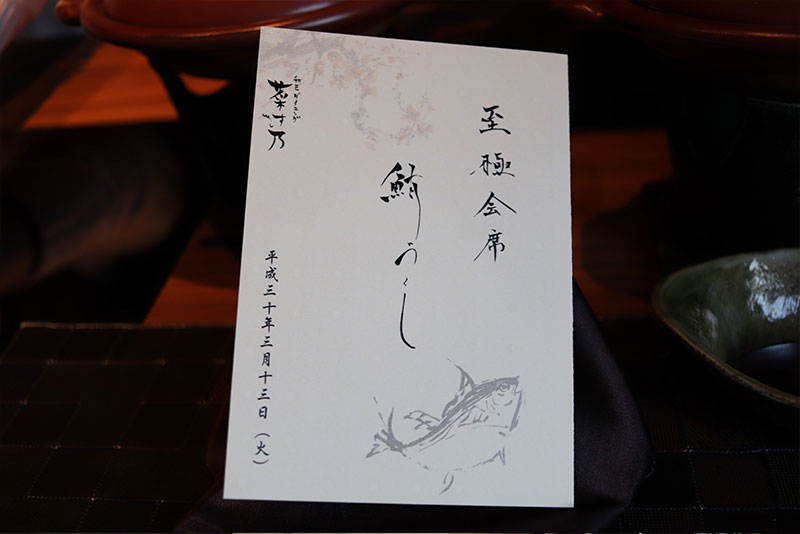 至極会席
鮪づくし
平成三十年三月十三日（火）